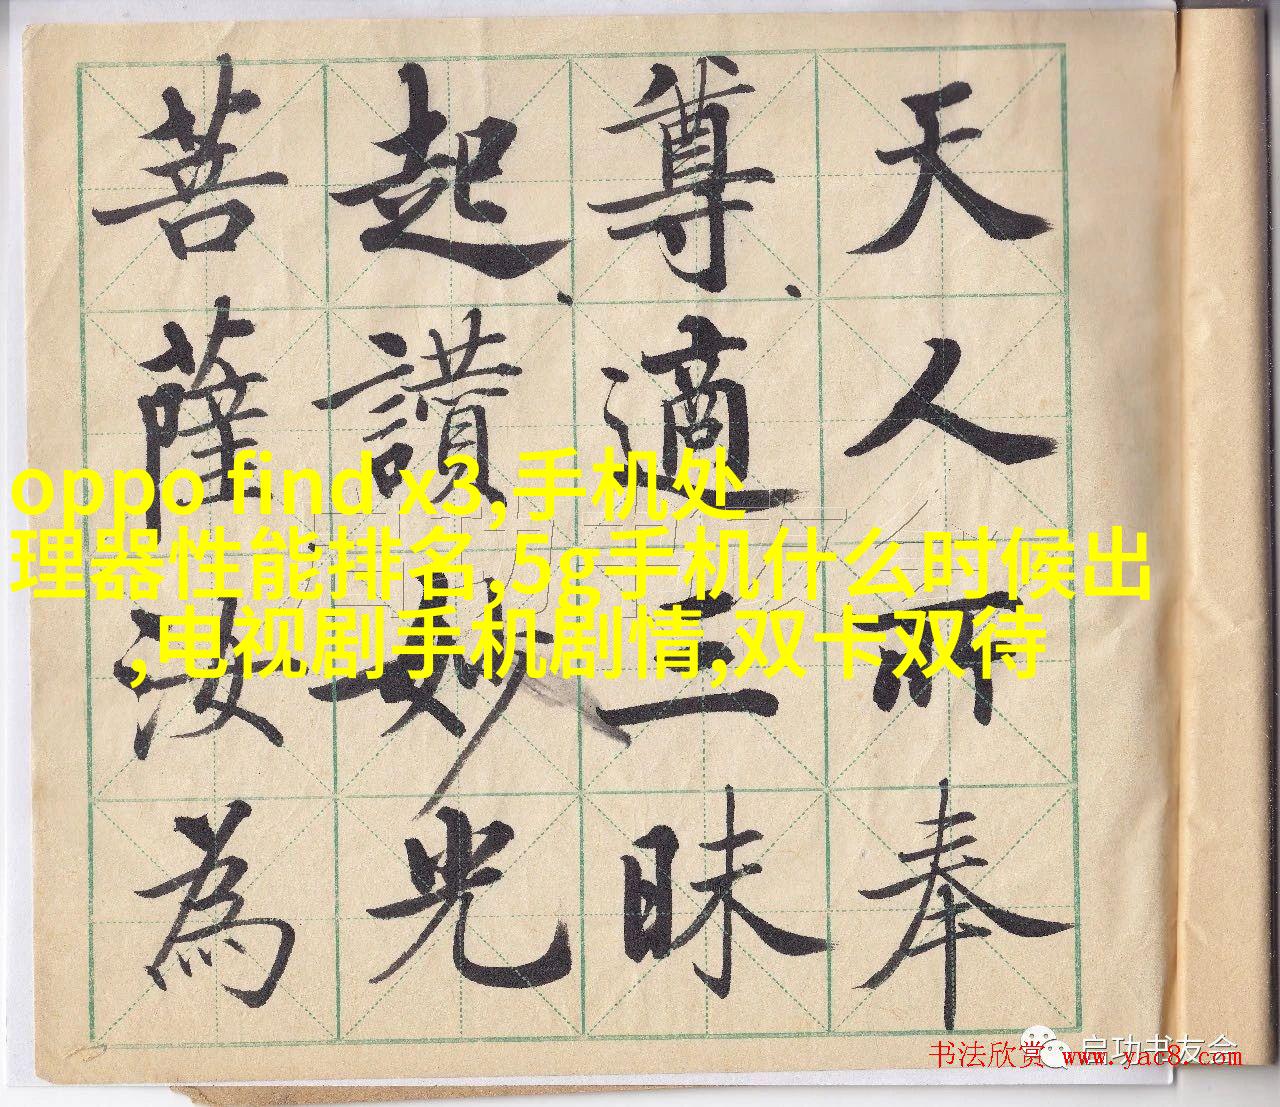 天人所奉
尊適三昧
起讚妙光
菩薩汝為
oppo find x3,手机处
理器性能排名,5g手机什么时候出
,电视剧手机剧情,双卡双待
启功书友会
书法欣赏 www.yac8.com